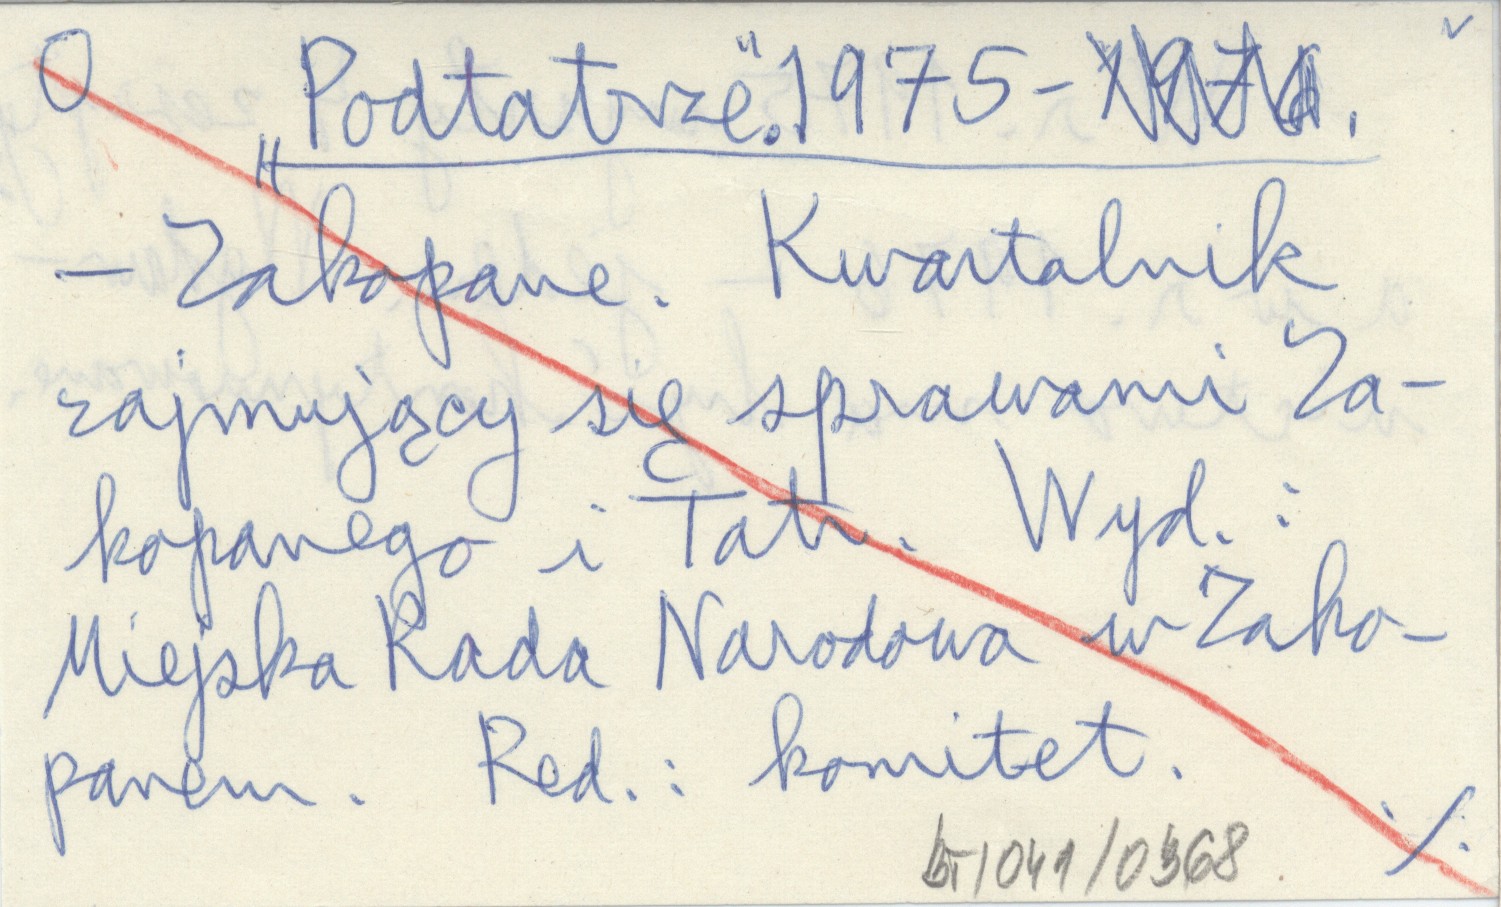 O „Podtatrze". 1975-
— Zakopane. Kwartalnik
zajmujący się sprawami Za-
kopanego i Tatr. Wyd.:
Miejska Rada Narodowa w Zako-
panem. Red.: komitet.
·/·
041/0368